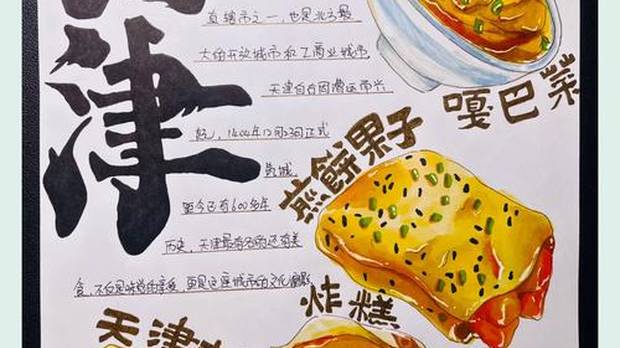 津
直辖市之一,也是北方最
大的开放城市和工商业城市,
天津自古因漕运而兴
起,1404年12月23日正式
筑城.
至今已有600多年
历史,天津最有名的还有美
食,不仅是味觉的享受,更是这座城市的文化缩影
嘎巴菜
煎餅果子
炸糕
天津